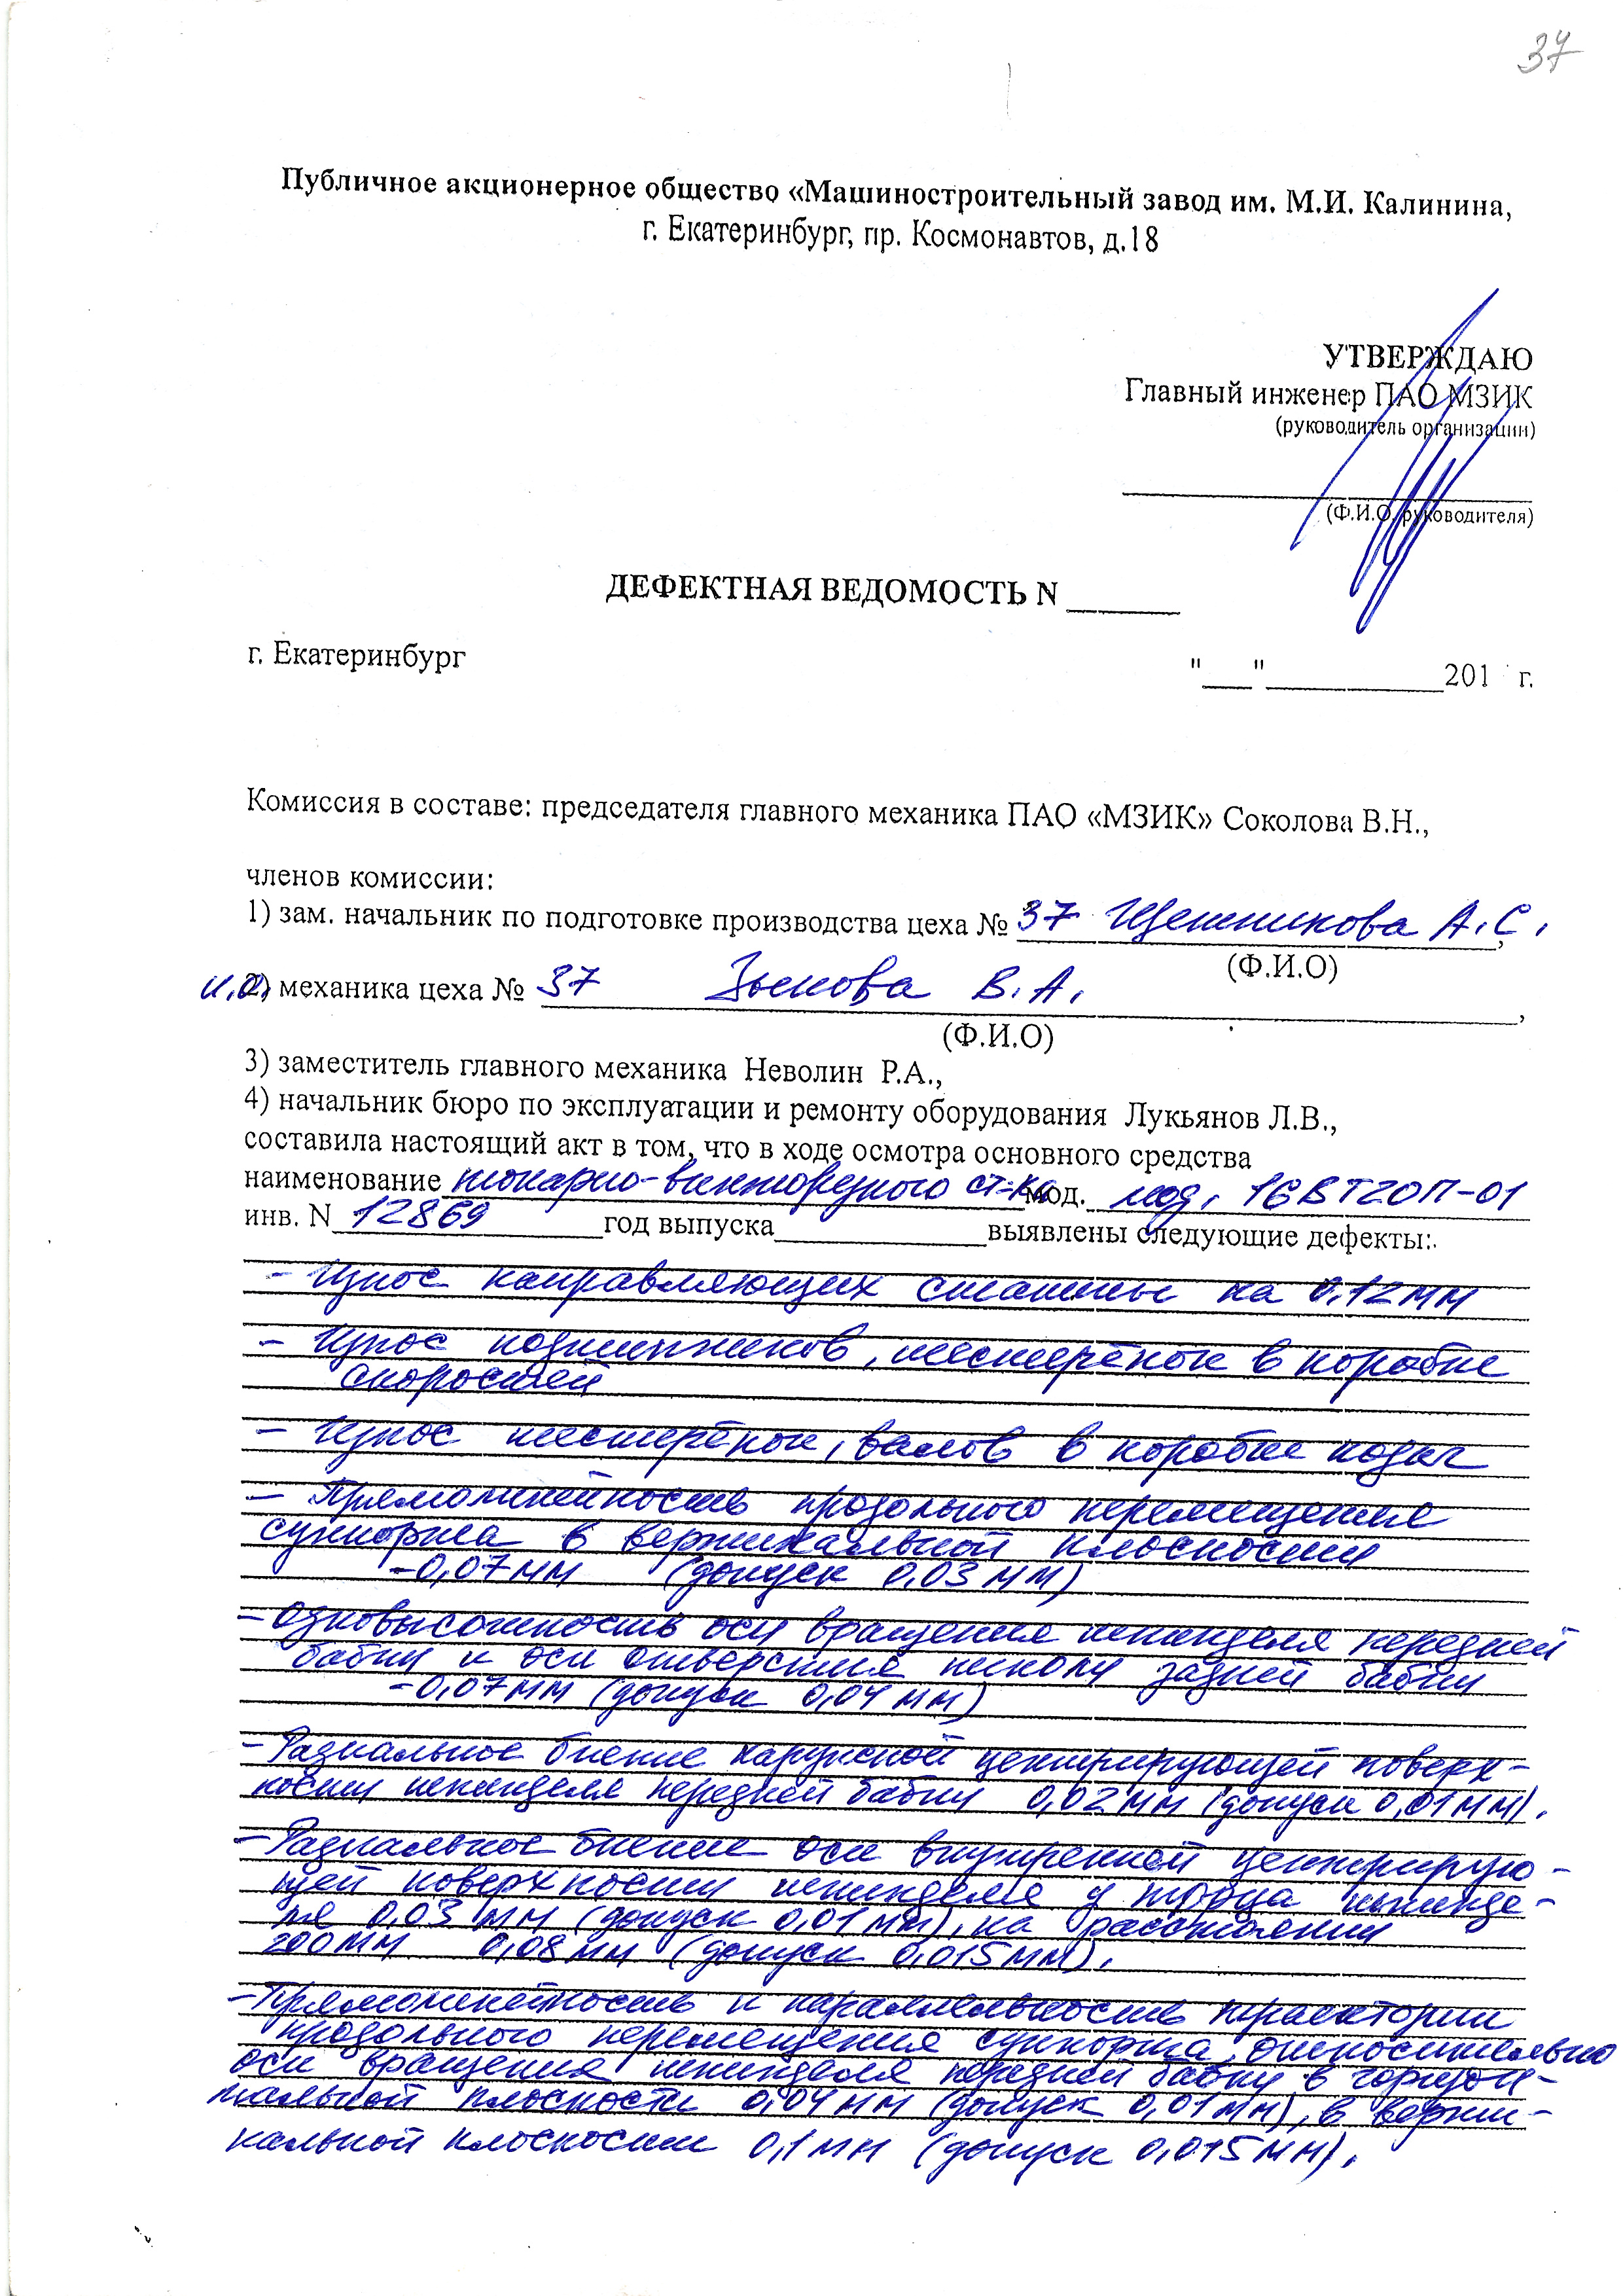 37
Публичное акционерное общество «Машиностроительный завод им. М.И. Калинина,
г. Екатеринбург, пр. Космонавтов, д.18
УТВЕРЖДАЮ
Главный инженер ПАО МЗИК
(руководитель организации)
(Ф.И.О. руководителя)
ДЕФЕКТНАЯ ВЕДОМОСТЬ N ______
г. Екатеринбург "___"__________201 г.
Комиссия в составе: председателя главного механика ПАО «МЗИК» Соколова В.Н.,
членов комиссии:
1) зам. начальник по подготовке производства цеха № 37 А.С.,
(Ф.И.О)
и.о. 2) механика цеха № 37 Зыкова В.А.,
(Ф.И.О)
3) заместитель главного механика Неволин Р.А.,
4) начальник бюро по эксплуатации и ремонту оборудования Лукьянов Л.В.,
составила настоящий акт в том, что в ходе осмотра основного средства
наименование токарно-винторезного ст-ка мод. мод. 16ВТ20П-01
инв. N 12869 год выпуска____________выявлены следующие дефекты:
- Износ направляющих станины на 0,12 мм
- Износ подшипников, шестерёнок в коробке
скоростей
- Износ шестерёнок, валов в коробке подач
- Прямолинейность продольного перемещения
суппорта в вертикальной плоскости
-0,07 мм (допуск 0,03 мм)
- Одновысотность оси вращения шпинделя передней
бабки и оси отверстия пиноли задней бабки
-0,07 мм (допуск 0,04 мм)
- Радиальное биение наружной центрирующей поверх-
ности шпинделя передней бабки 0,02 мм (допуск 0,01 мм).
- Радиальное биение оси внутренней центрирую-
щей поверхности шпинделя у торца шпинде-
ля 0,03 мм (допуск 0,01 мм), на расстоянии
200 мм 0,08 мм (допуск 0,015 мм).
- Прямолинейность и параллельность траектории
продольного перемещения суппорта относительно
оси вращения шпинделя передней бабки в горизон-
тальной плоскости 0,04 мм (допуск 0,01 мм), в верти-
кальной плоскости 0,1 мм (допуск 0,015 мм).